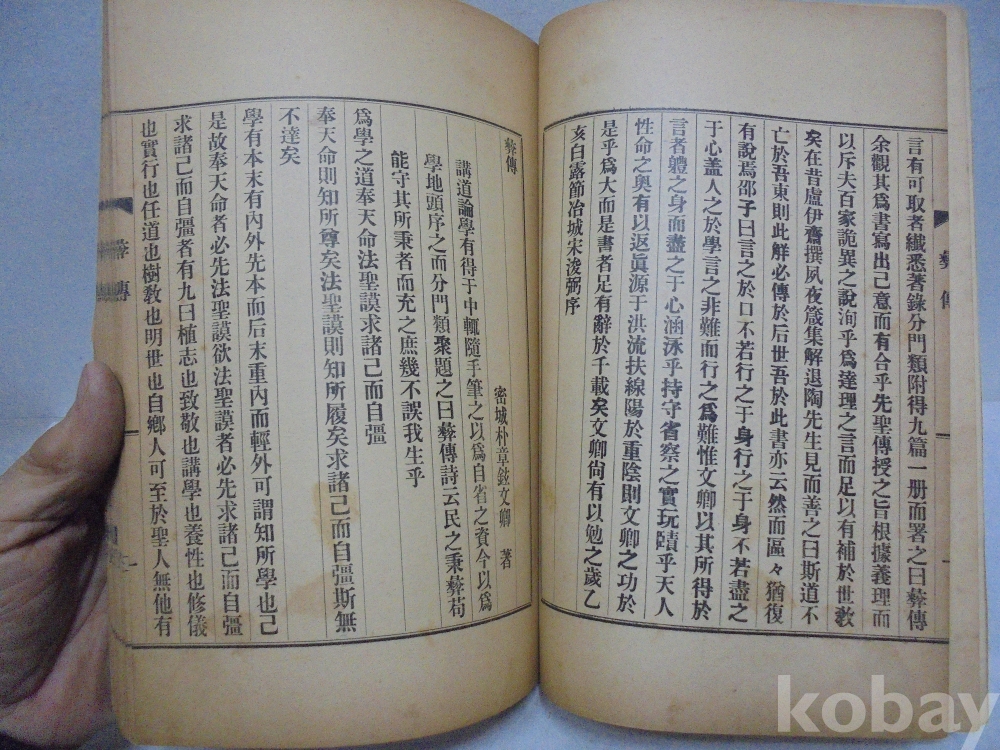 言有可取者纎悉著錄分門類附得九篇一册而署之曰彜傳
余觀其爲書寫出己意而有合乎先聖傳授之旨根據義理而
以斥夫百家詭異之說洵乎爲達理之言而足以有補於世敎
矣在昔盧伊齋撰夙夜箴集解退陶先生見而善之曰斯道不
亡於吾東則此解必傳於后世吾於此書亦云然而區々猶復
有說焉邵子曰言之於口不若行之于身行之于身不若盡之
于心盖人之於學言之非難而行之爲難惟文卿以其所得於
言者軆之身而盡之于心涵泳乎持守省察之實玩賾乎天人
性命之奧有以返眞源于洪流扶線陽於重陰則文卿之功於
是乎爲大而是書者足有辭於千載矣文卿尙有以勉之歲乙
亥白露節冶城宋浚弼序
彜傳
彜傳
密城朴章鉉文卿 著
講道論學有得于中輒隨手筆之以爲自省之資今以爲
學地頭序之而分門類聚題之曰彜傳詩云民之秉彜苟
能守其所秉者而充之庶幾不誤我生乎
爲學之道奉天命法聖謨求諸己而自彊
奉天命則知所尊矣法聖謨則知所履矣求諸己而自彊斯無
不達矣
學有本末有內外先本而后末重內而輕外可謂知所學也已
是故奉天命者必先法聖謨欲法聖謨者必先求諸己而自彊
求諸己而自彊者有九曰植志也致敬也講學也養性也修儀
也實行也任道也樹敎也明世也自鄕人可至於聖人無他有
彜傳
kobay